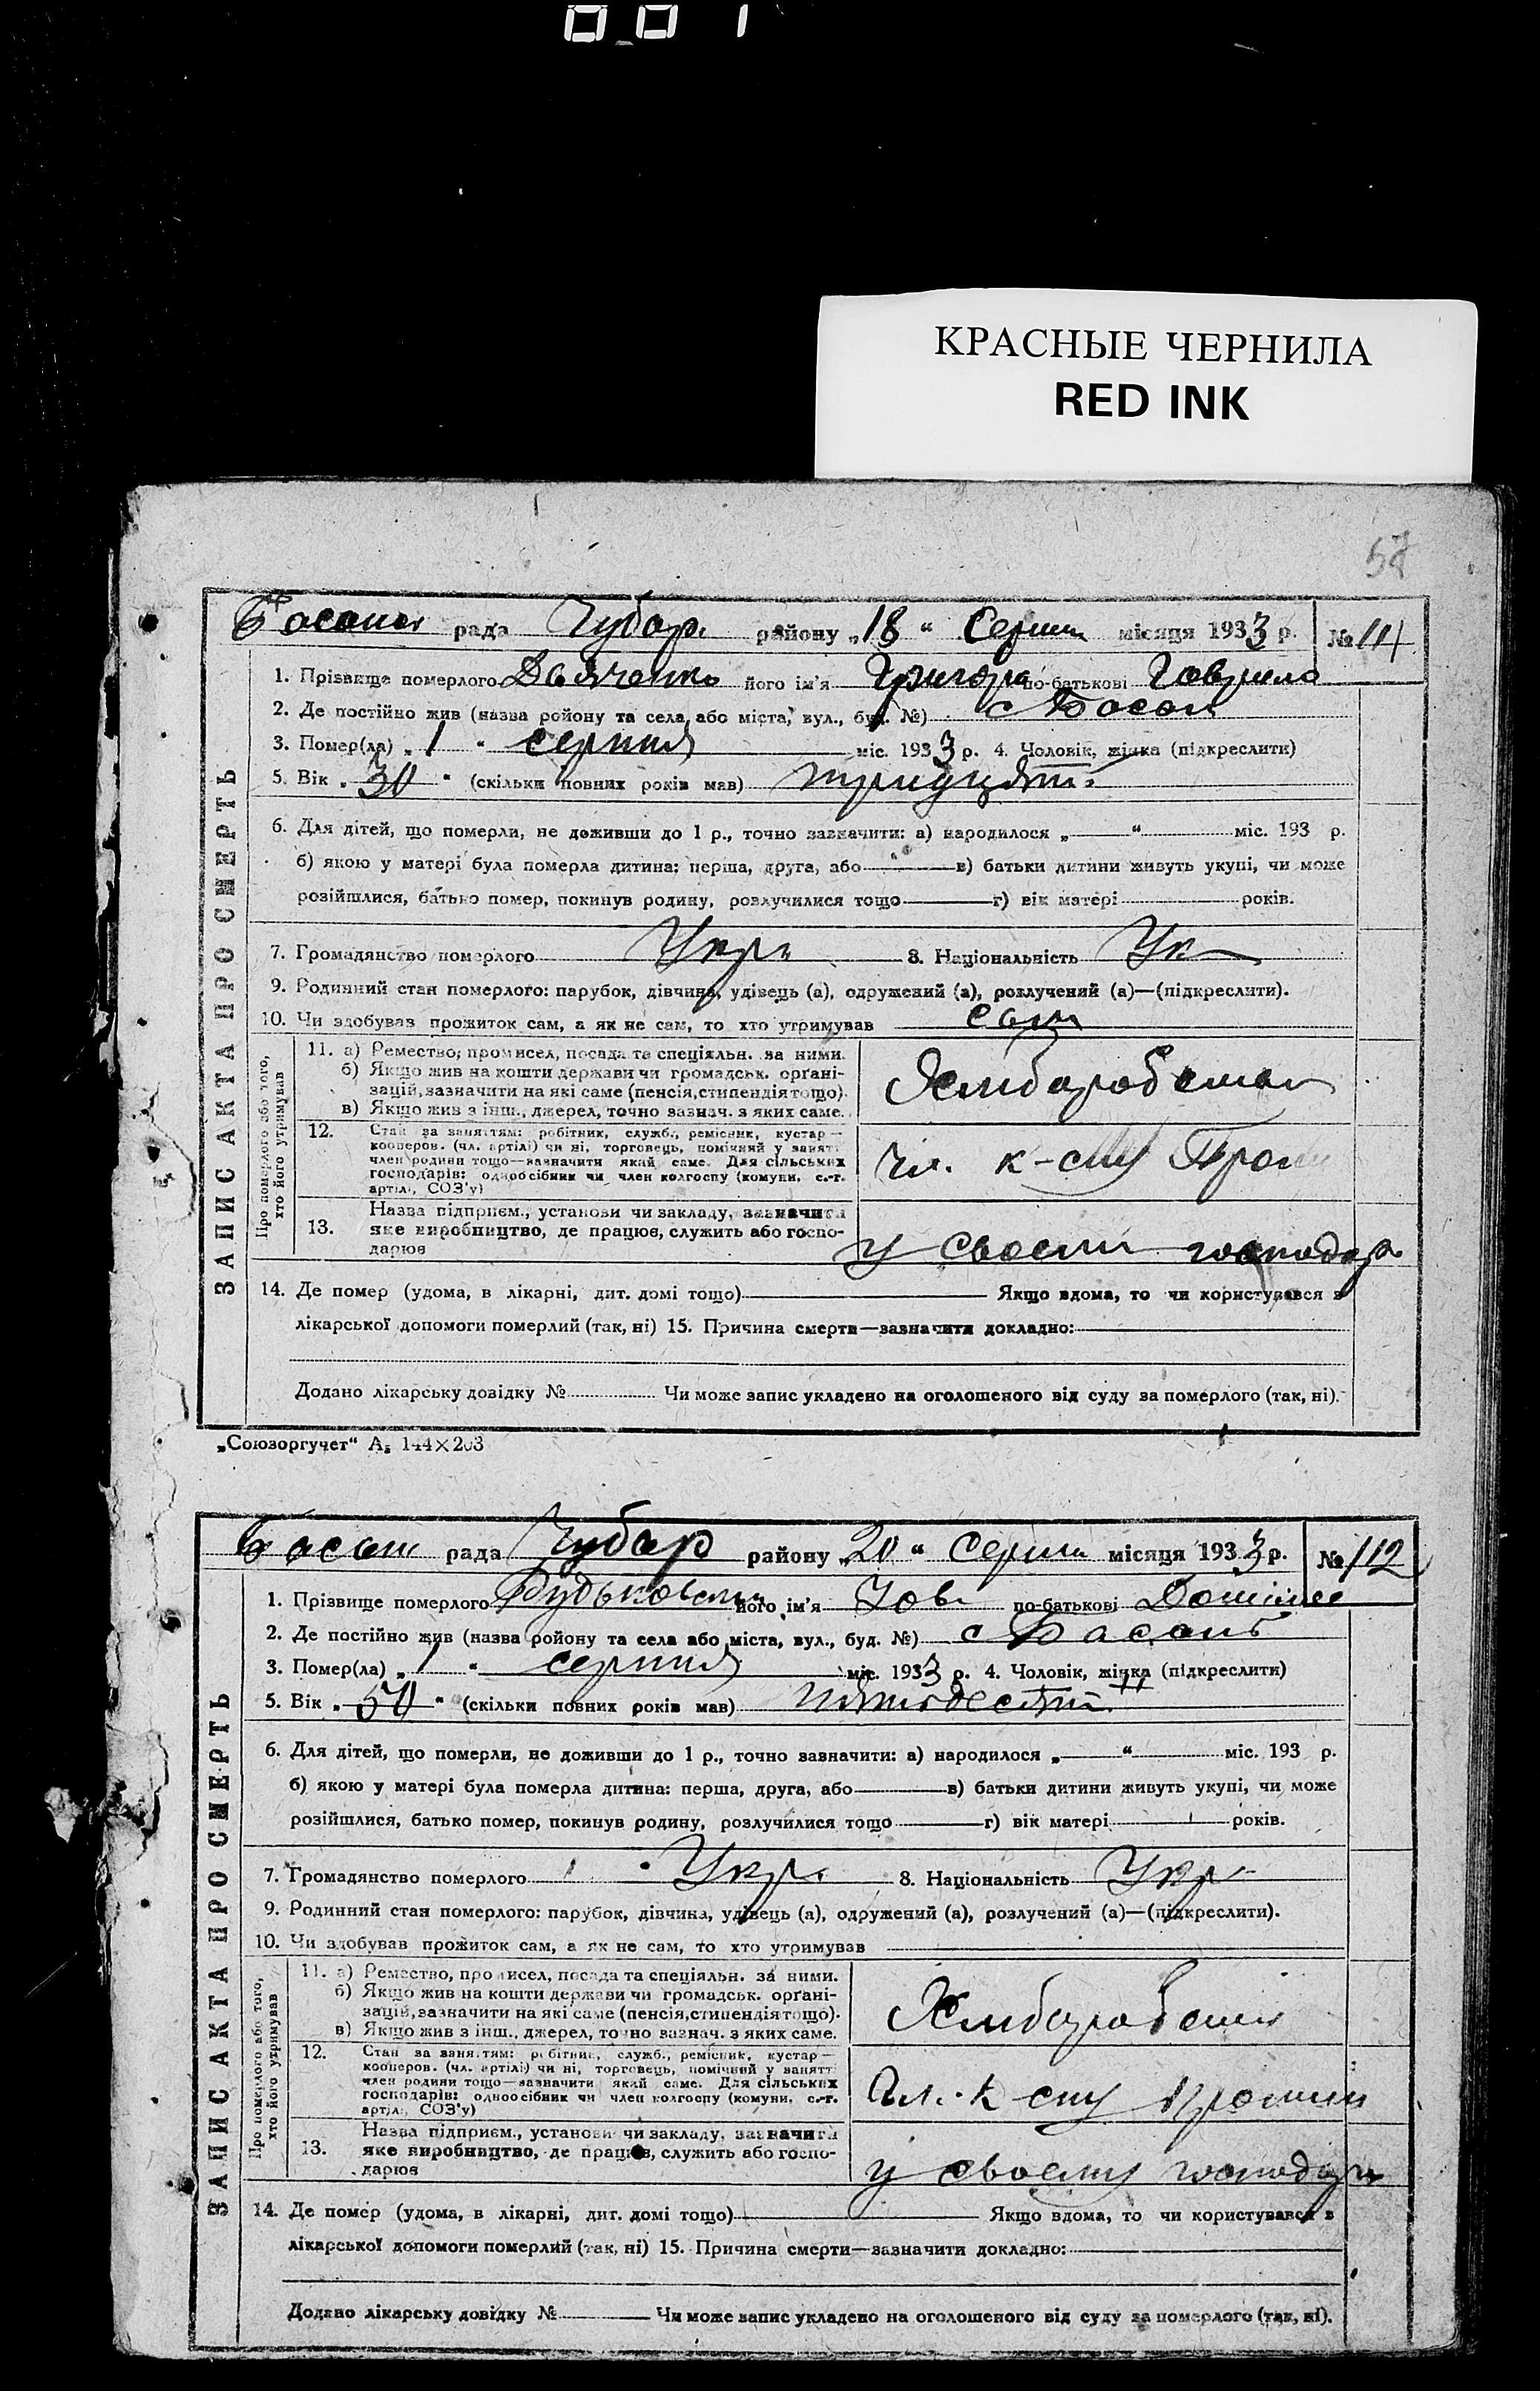 001
КРАСНЫЕ ЧЕРНИЛА
RED INK
57
рада Чубар. району „18“ Серпня місяця 1933 р. № 111
1. Прізвище померлого Дяченко його ім'я Григорій по-батькові Гаврило
2. Де постійно жив (назва району та села або міста, вул., буд. №) с Басань
3. Помер(ла) „1“ серпня міс. 1933 р. 4. Чоловік, жінка (підкреслити)
5. Вік „30“ (скільки повних років мав) тридцять
6. Для дітей, що померли, не доживши до 1 р., точно зазначити: а) народилося „ “ міс. 193 р.
б) якою у матері була померла дитина: перша, друга, або в) батьки дитини живуть укупі, чи може
розійшлися, батько помер, покинув родину, розлучилися тощо г) вік матері років.
7. Громадянство померлого Укр. 8. Національність Ук
9. Родинний стан померлого: парубок, дівчина, удівець (а), одружений (а), розлучений (а)—(підкреслити).
10. Чи здобував прожиток сам, а як не сам, то хто утримував сам
ЗАПИС АКТА ПРО СМЕРТЬ
Про померлого або того,
хто його утримував
11. а) Ремество, промисел, посада та спеціяльн. за ними.
б) Якщо жив на кошти держави чи громадськ. орґані-
зацій, зазначити на які саме (пенсія, стипендія тощо).
в) Якщо жив з інш., джерел, точно зазнач. з яких саме.
Хліборобство
12. Стан за заняттям: робітник, служб., ремісник, кустар—
кооперов. (чл. артілі) чи ні, торговець, помічний у занятт.
член родини тощо—зазначити який саме. Для сільських
господарів: одноосібник чи член колгоспу (комуни, с.-г.
артілі, СОЗ'у)
чл. к-спу
13. Назва підприєм., установи чи закладу, зазначити
яке виробництво, де працює, служить або госпо-
дарює
у своєму господар
14. Де помер (удома, в лікарні, дит. домі тощо) Якщо вдома, то чи користувався з
лікарської допомоги померлий (так, ні) 15. Причина смерти—зазначити докладно:
Додано лікарську довідку № Чи може запис укладено на оголошеного від суду за померлого (так, ні).
„Союзоргучет“ А5 144×203
рада Чубар району „20“ Серпня місяця 1933 р. № 112
1. Прізвище померлого його ім'я Йов по-батькові
2. Де постійно жив (назва району та села або міста, вул., буд. №) с Басань
3. Помер(ла) „1“ серпня міс. 1933 р. 4. Чоловік, жінка (підкреслити)
5. Вік „50“ (скільки повних років мав) пятьдесять
6. Для дітей, що померли, не доживши до 1 р., точно зазначити: а) народилося „ “ міс. 193 р.
б) якою у матері була померла дитина: перша, друга, або в) батьки дитини живуть укупі, чи може
розійшлися, батько помер, покинув родину, розлучилися тощо г) вік матері років.
7. Громадянство померлого Укр. 8. Національність Укр
9. Родинний стан померлого: парубок, дівчина, удівець (а), одружений (а), розлучений (а)—(підкреслити).
10. Чи здобував прожиток сам, а як не сам, то хто утримував
ЗАПИС АКТА ПРО СМЕРТЬ
Про померлого або того,
хто його утримував
11. а) Ремество, промисел, посада та спеціяльн. за ними.
б) Якщо жив на кошти держави чи громадськ. орґані-
зацій, зазначити на які саме (пенсія, стипендія тощо).
в) Якщо жив з інш., джерел, точно зазнач. з яких саме.
Хліборобство
12. Стан за заняттям: робітник, служб., ремісник, кустар—
кооперов. (чл. артілі) чи ні, торговець, помічний у занятт.
член родини тощо—зазначити який саме. Для сільських
господарів: одноосібник чи член колгоспу (комуни, с.-г.
артілі, СОЗ'у)
чл. к спу
13. Назва підприєм., установи чи закладу, зазначити
яке виробництво, де працює, служить або госпо-
дарює
у своєму господар
14. Де помер (удома, в лікарні, дит. домі тощо) Якщо вдома, то чи користувався з
лікарської допомоги померлий (так, ні) 15. Причина смерти—зазначити докладно:
Додано лікарську довідку № Чи може запис укладено на оголошеного від суду за померлого (так, ні).